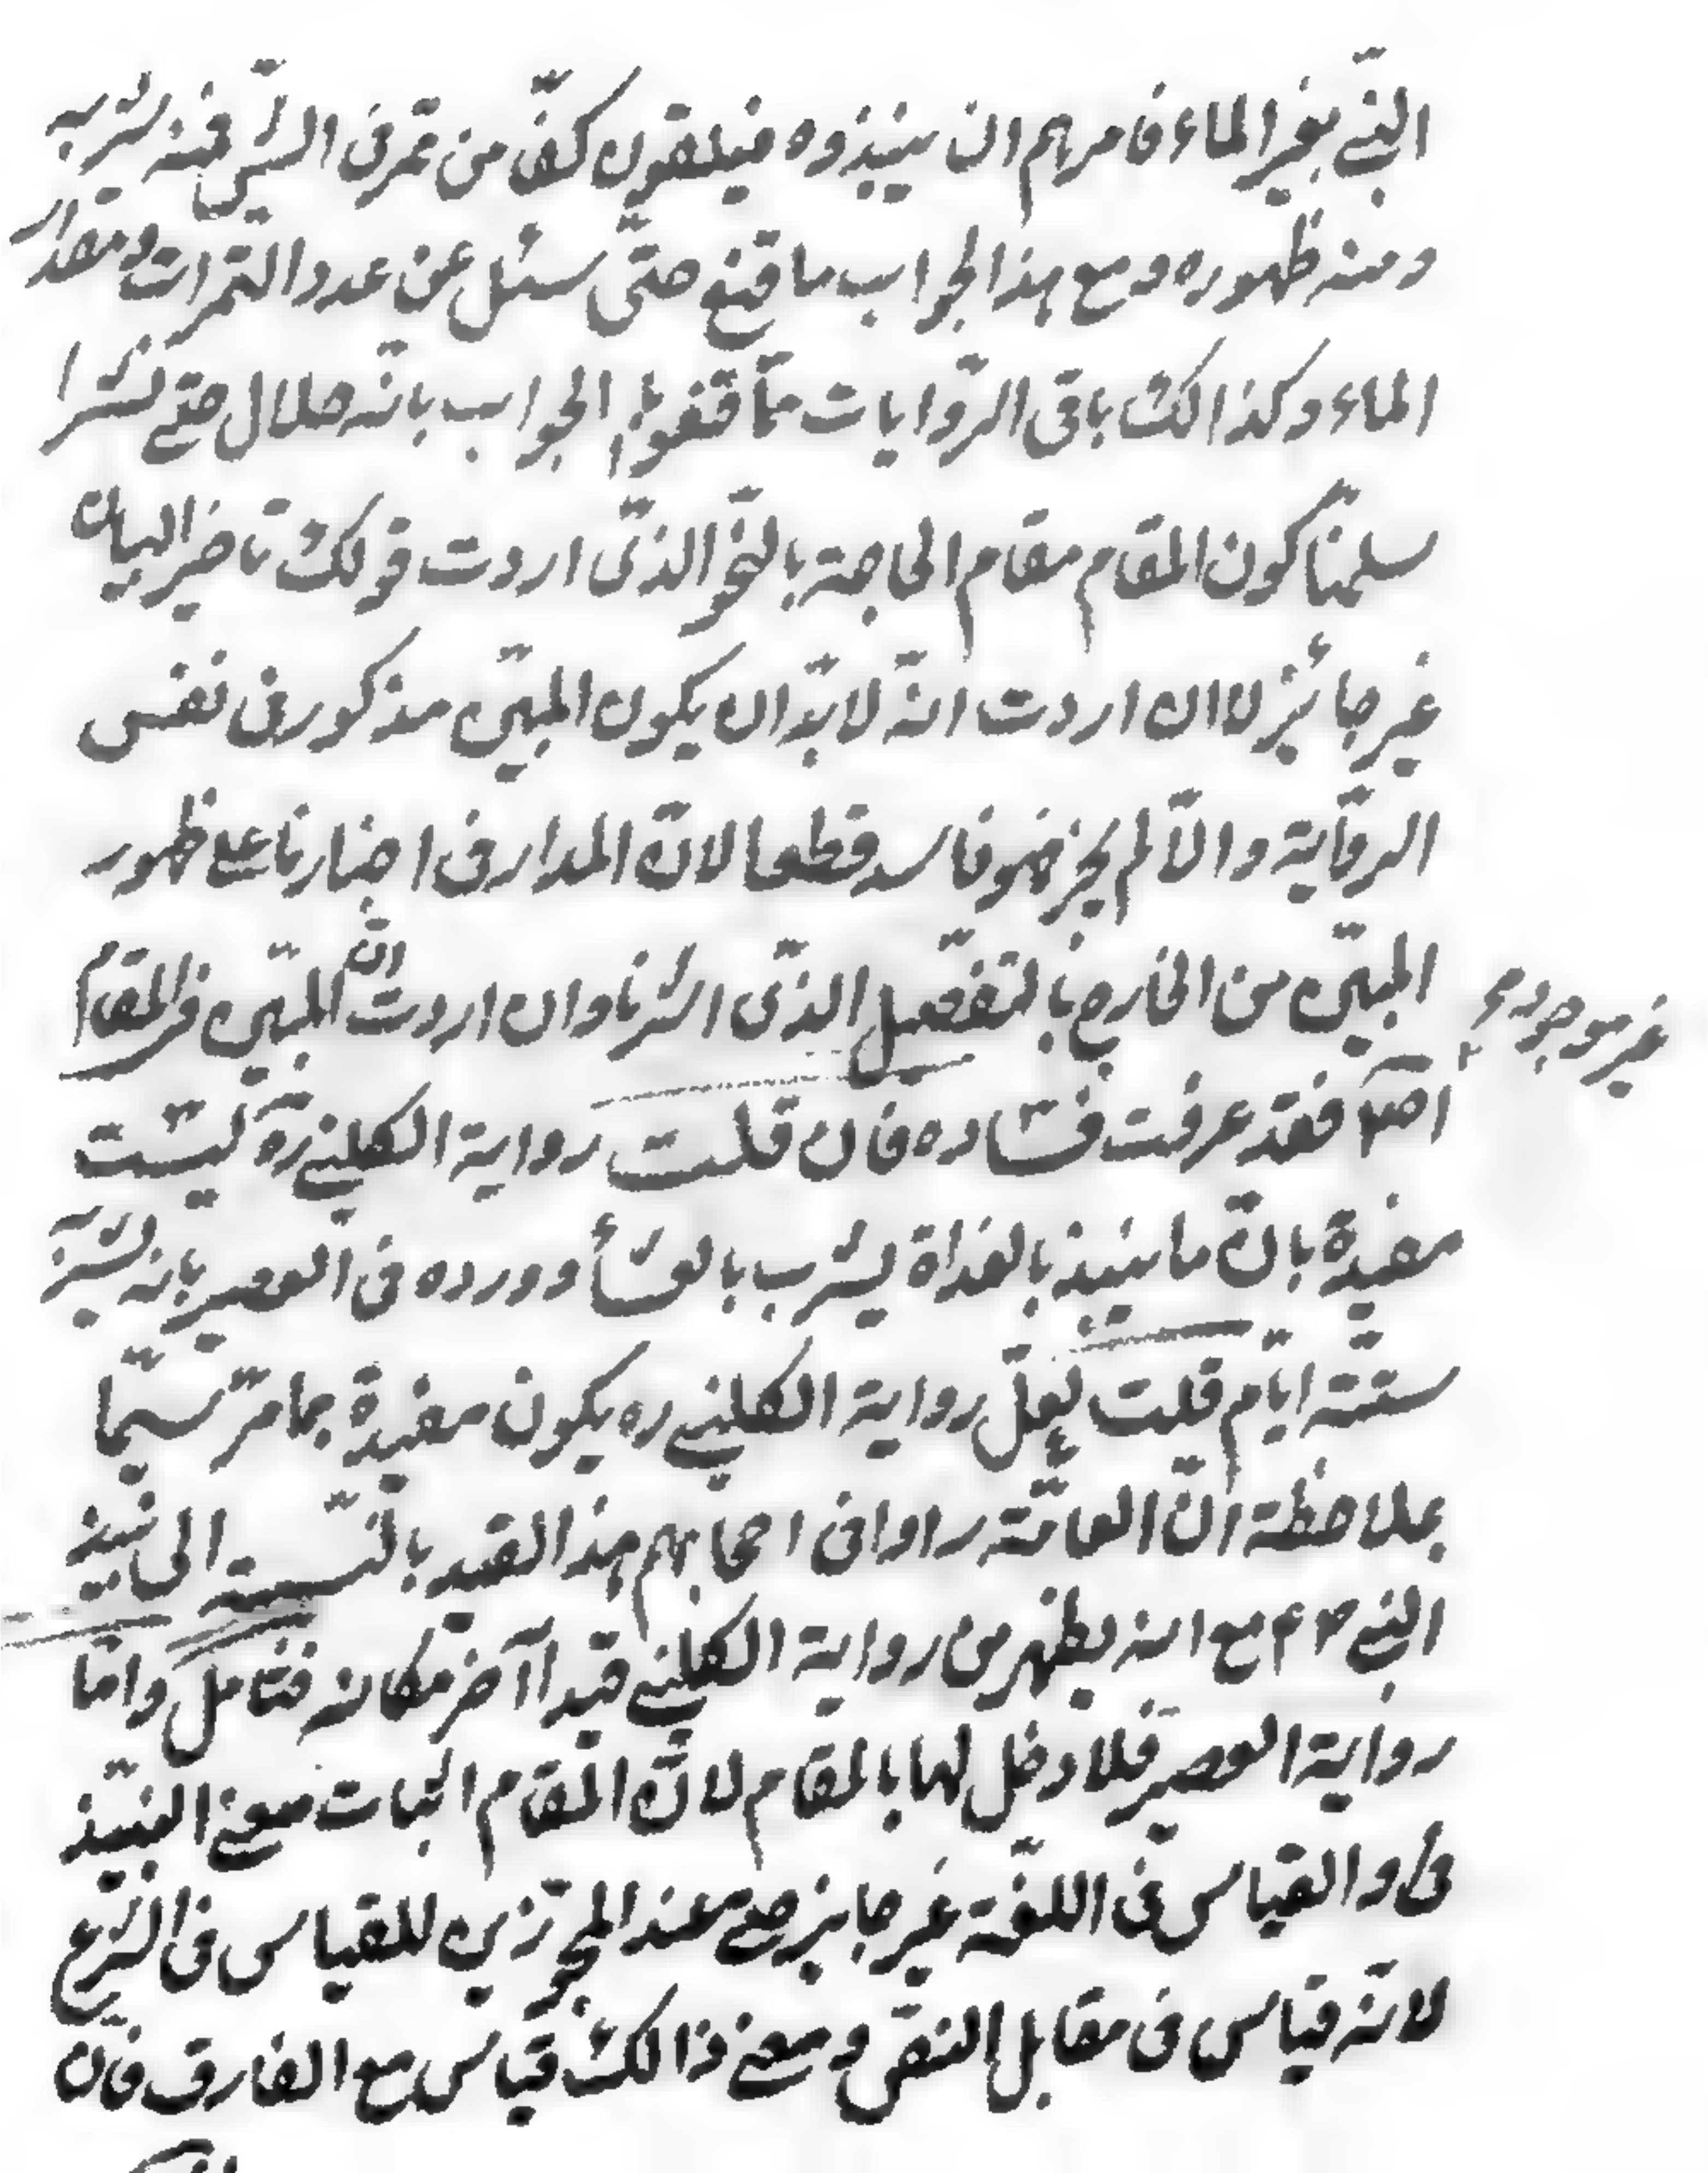 النبی بغیر الماء فامرهم ان ینبذوه فیلقون کفّ من تمر فی الشن فمنه شربه
ومنه ظهوره ومع هذا الجواب ما قنع حتّی سئل عن عدد التمرات ومقدار
الماء وکذالک باقی الرّوایات ممّا قنعوا الجواب بانّه حلال حتی
سلمنا کون المقام مقام الحاجة بالنحو الذّی اردت قولک تاخیر البیان
غیر جائز لا ان اردت انّه لابدّ ان یکون المبیّن مذکور فی نفس
الروّایة والّا لم یجز فهو فاسد قطعا لانّ المدار فی اخبارنا علی ظهور
المبیّن من الخارج بالتفصیل الذّی اشرنا وان اردت انّ المبیّن فی المقام
غیر موجود
اصلا فقد عرفت فساده فان قلت روایة الکلینی ره لیست
مفیدة بانّ ما ینبذ بالغداة یشرب بالعشأ وورده فی العصیر بانه یشرب
ستّة ایّام قلت لعلّ روایة الکلینی ره یکون مفیدة بما مرّ سیّما
بملاحظة انّ العامّة راوا فی اصحابهم هذا القید بالنّسبة الی نبیذ
النبی ص م مع انه یظهر من روایة الکلینی قیدا آخر مکانه فتامل وامّا
روایة العصیر فلا دخل لها بالمقام لانّ المقام اثبات معنی النبیذ
فی والقیاس فی اللغّة غیر جایز حتی عند المجوّزین للقیاس فی الشرع
لانّه قیاس فی مقابل النص ومعنی ذالک قیاس مع الفارق فان